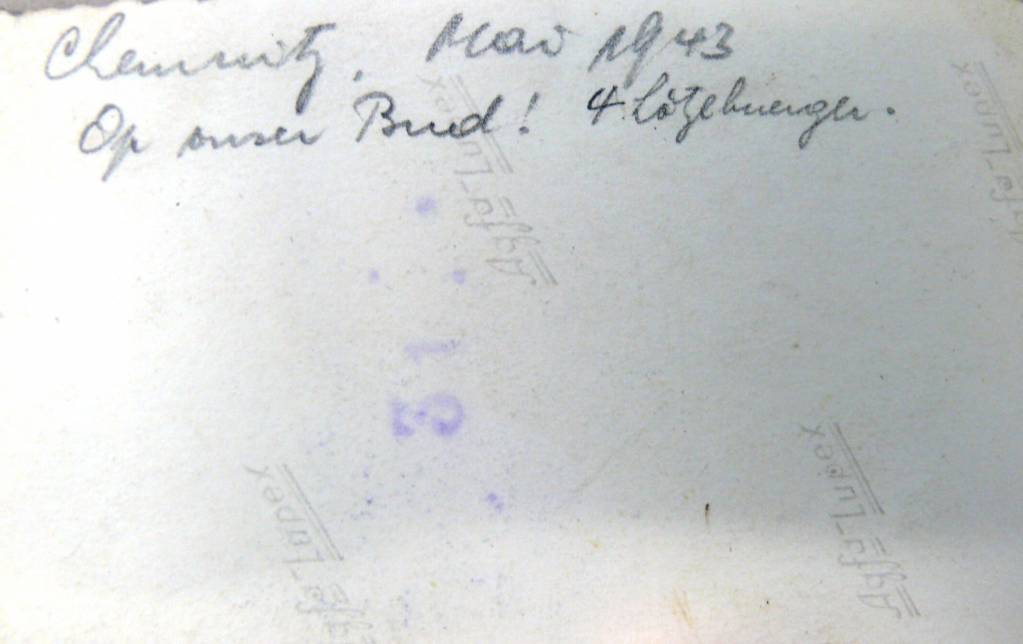 Chemnitz, Mai 1943
Op onser Bud! 4 Lötzebuerger.
Agfa-Lupex
Agfa-Lupex
31
Agfa-Lupex
Agfa-Lupex